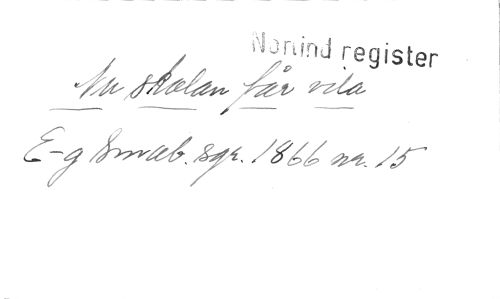 Norlind register
Nu skolan får vila
E-g Småb. sgr. 1866 nr. 15